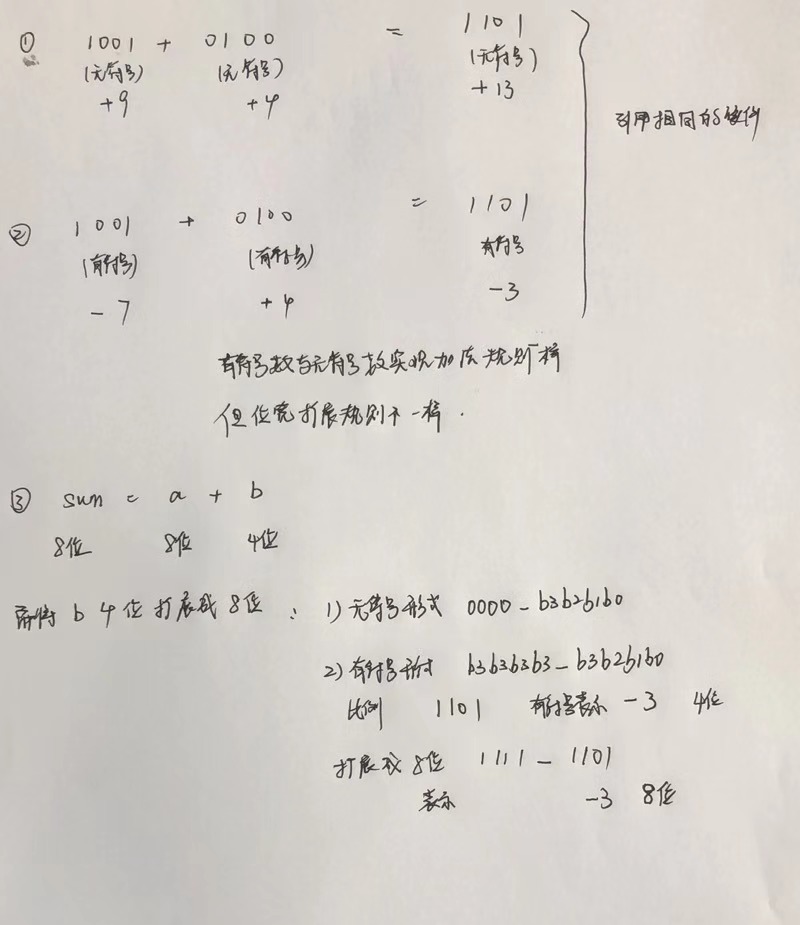 ① 1001 + 0100 = 1101
(无符号) (无符号) (无符号)
+9 +4 +13
可用相同的硬件
② 1001 + 0100 = 1101
(有符号) (有符号) 有符号
-7 +4 -3
有符号数与无符号数实现加法规则一样
但位宽扩展规则不一样.
③ sum = a + b
8位 8位 4位
需将 b 4位扩展成8位: 1) 无符号形式 0000-b3b2b1b0
2) 有符号形式 b3b3b3b3-b3b2b1b0
比例 1101 有符号表示 -3 4位
扩展成8位 1111-1101
表示 -3 8位